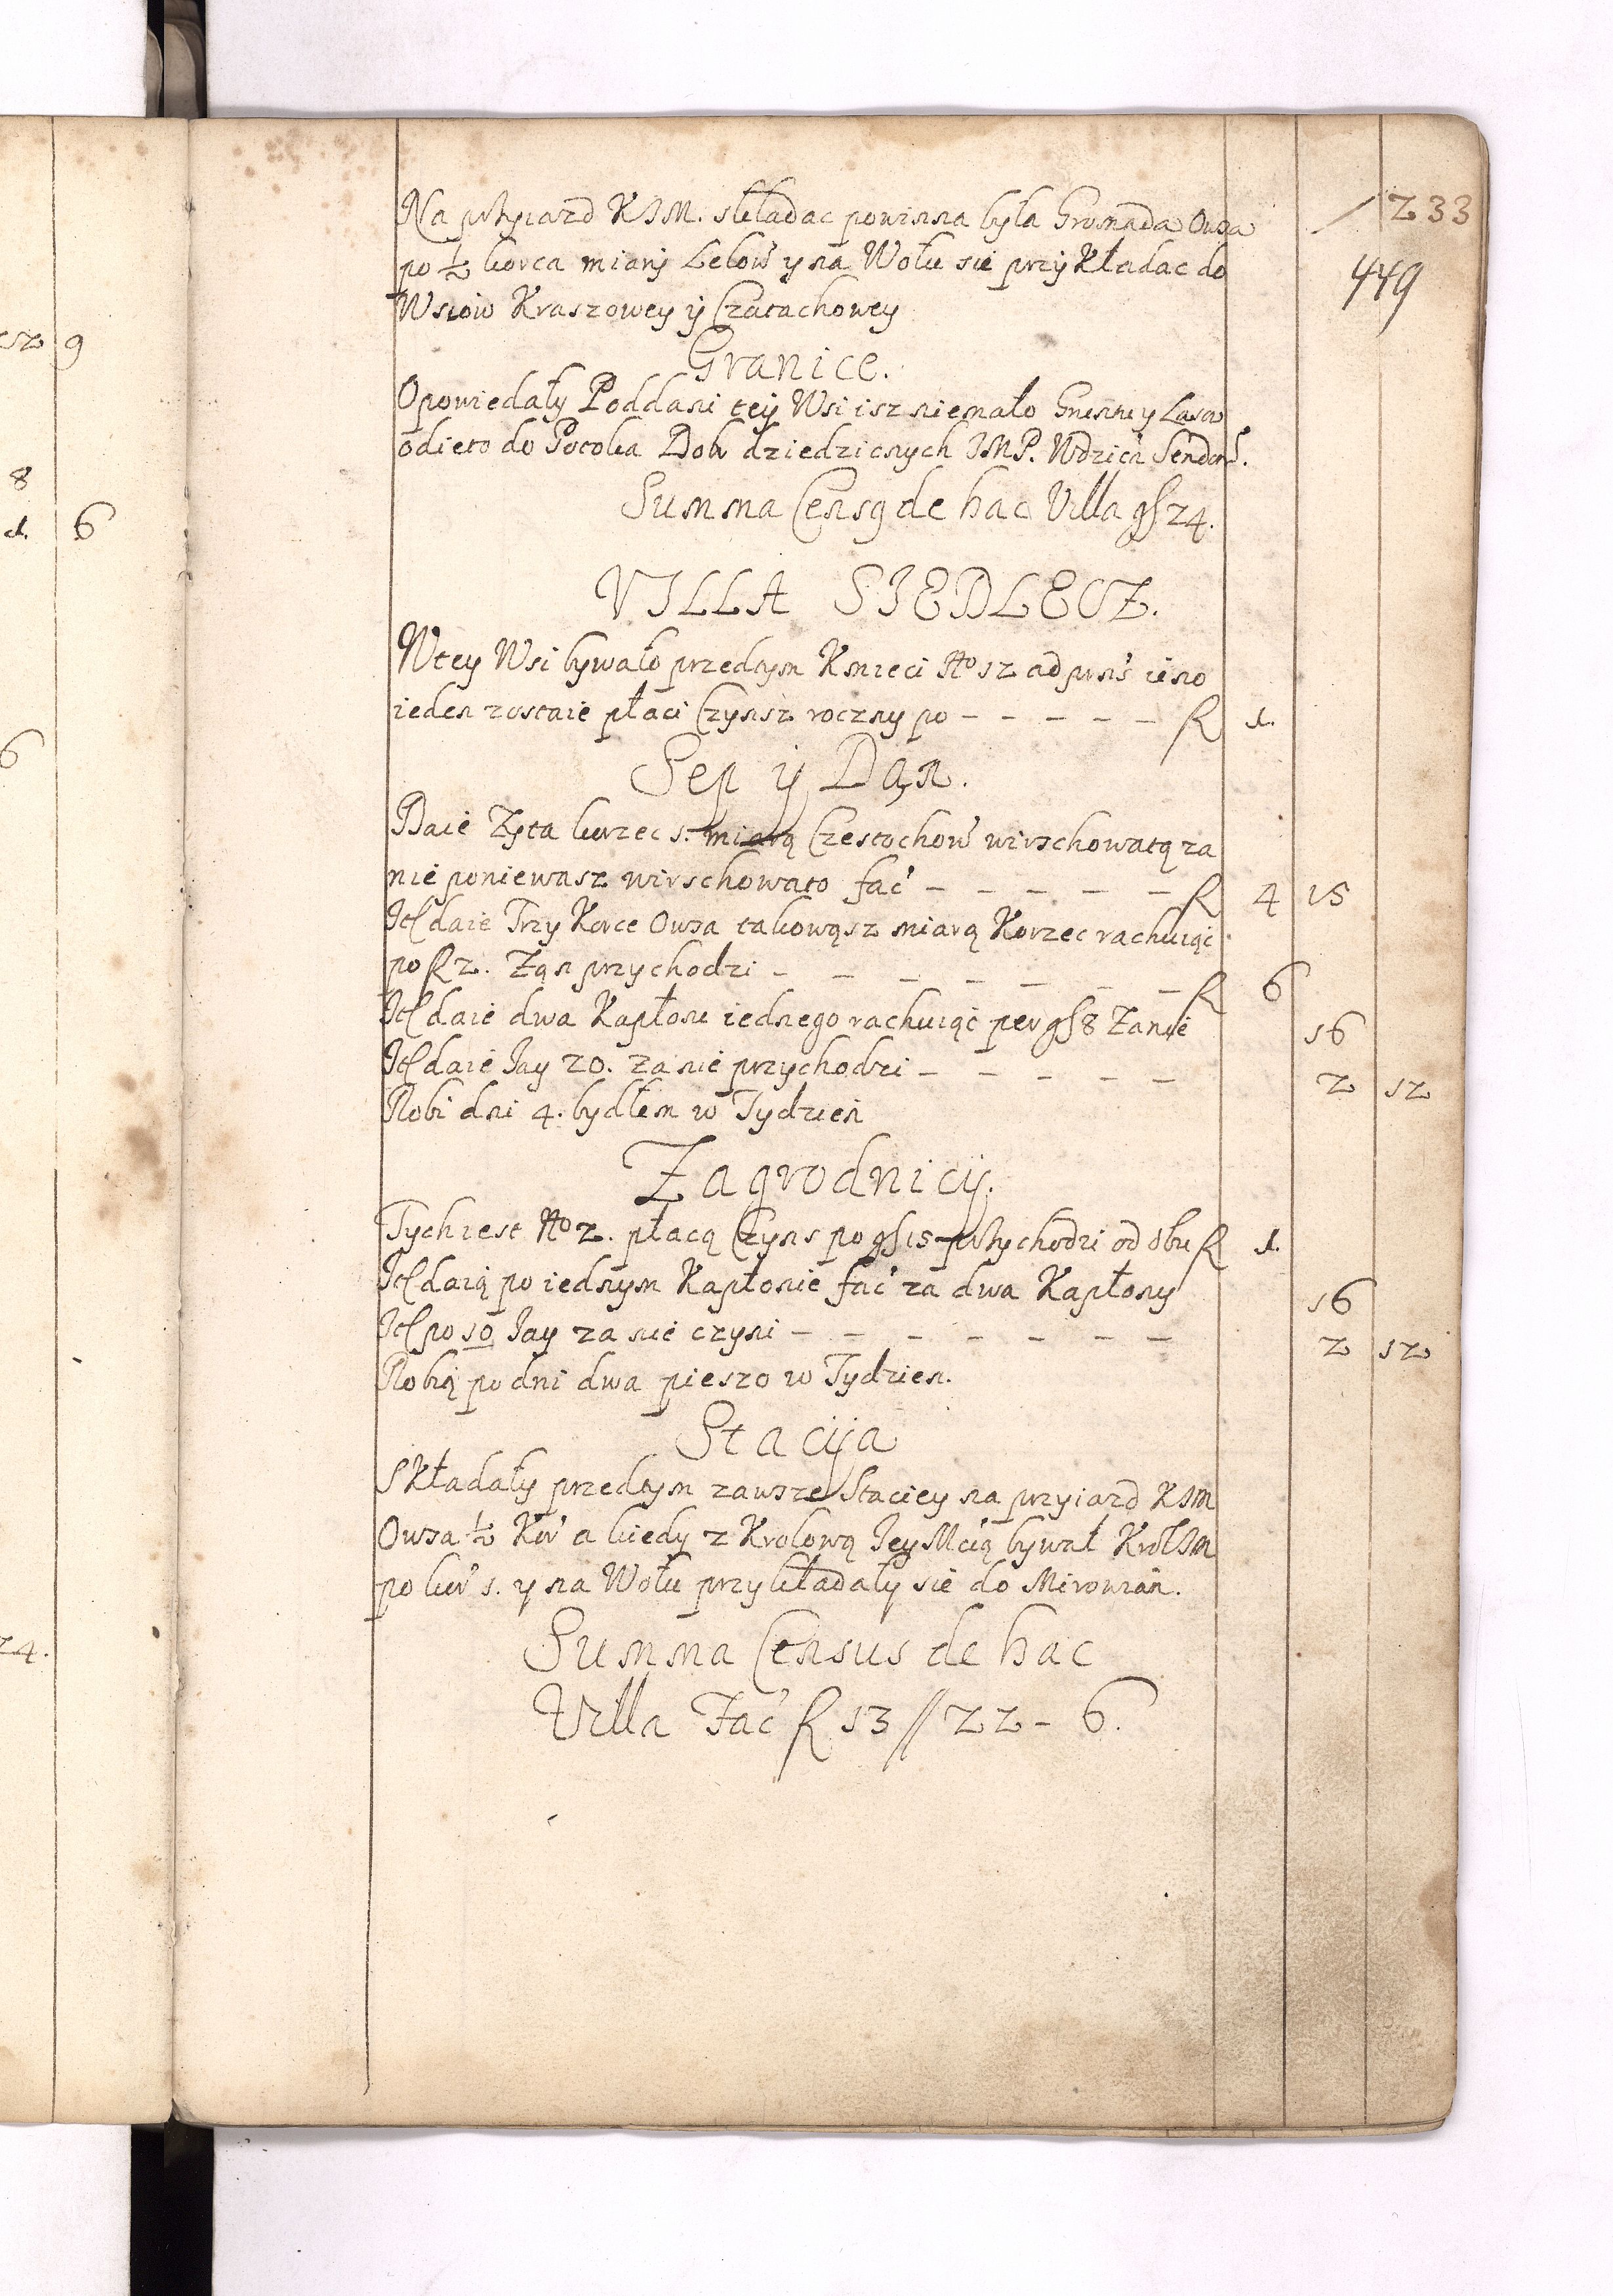 233
449
Na przyiazd KJM. składac powinna była Gromada Owsa
po ½ korca miary Lelow̃ y na Wołu sie przykładac do
Wsiow Kraszowey ÿ Czatachowey
Granice.
Opowiedały Poddani teÿ Wsi isz niemało Gruntu y Lasow
odieto do Potoka Dobr dziedzicznych JMP.
Summa Censg de hac Villa gſ 24.
VILLA SIEDLECZ.
W tey Wsi bywało przedtym Kmieci Nº 12 ad prns ieno
ieden zostaie płaci Czynsz roczny po - - - - - R 1.
Sep ÿ Dań.
Daie Zyta korzec 1. miarą Czestochow̃ wirzchowatą za
nie poniewasz wirzchowato fac̃ - - - - - R 4 15
Itl daie Trzy Korce Owsa takowąsz miarą Korzec rachuiąc
po R 2. Zań przychodzi - - - - - - - R 6
Itl daie dwa Kapłonu iednego rachuiąc per gſ 8 Zanie 16
Itl daie Jay 20. za nie przychodzi - - - - - 2 12
Robi dni 4. bydłem w Tydzień
Zagrodnicÿ.
Tych iest Nº 2. płacą Czyns po gſ 15 przychodzi od obu R 1.
Itl daią po iednym Kapłonie fac̃ za dwa Kapłony 16
Itl po 10 Jay za nie czyni - - - - - - - 2 12
Robią po dni dwa pieszo w Tydzien.
Stacÿa
Składały przedtym zawsze Staciey na przyiazd KJM
Owsa ½ Kor̃ a kiedy z Krolową Jey Mcią bywał Krol JM
po kor̃ 1. y na Wołu przykładały sie do Mirowian.
Summa Census de hac
Villa Fac̃ R 13 // 22 - 6.